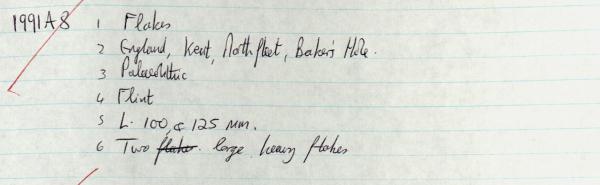 1991A8 1 Flakes
2 England, Kent, Northfleet, Baker's Hole.
3 Palaeolithic
4 Flint
5 L. 100, & 125 mm.
6 Two flakes. large heavy flakes